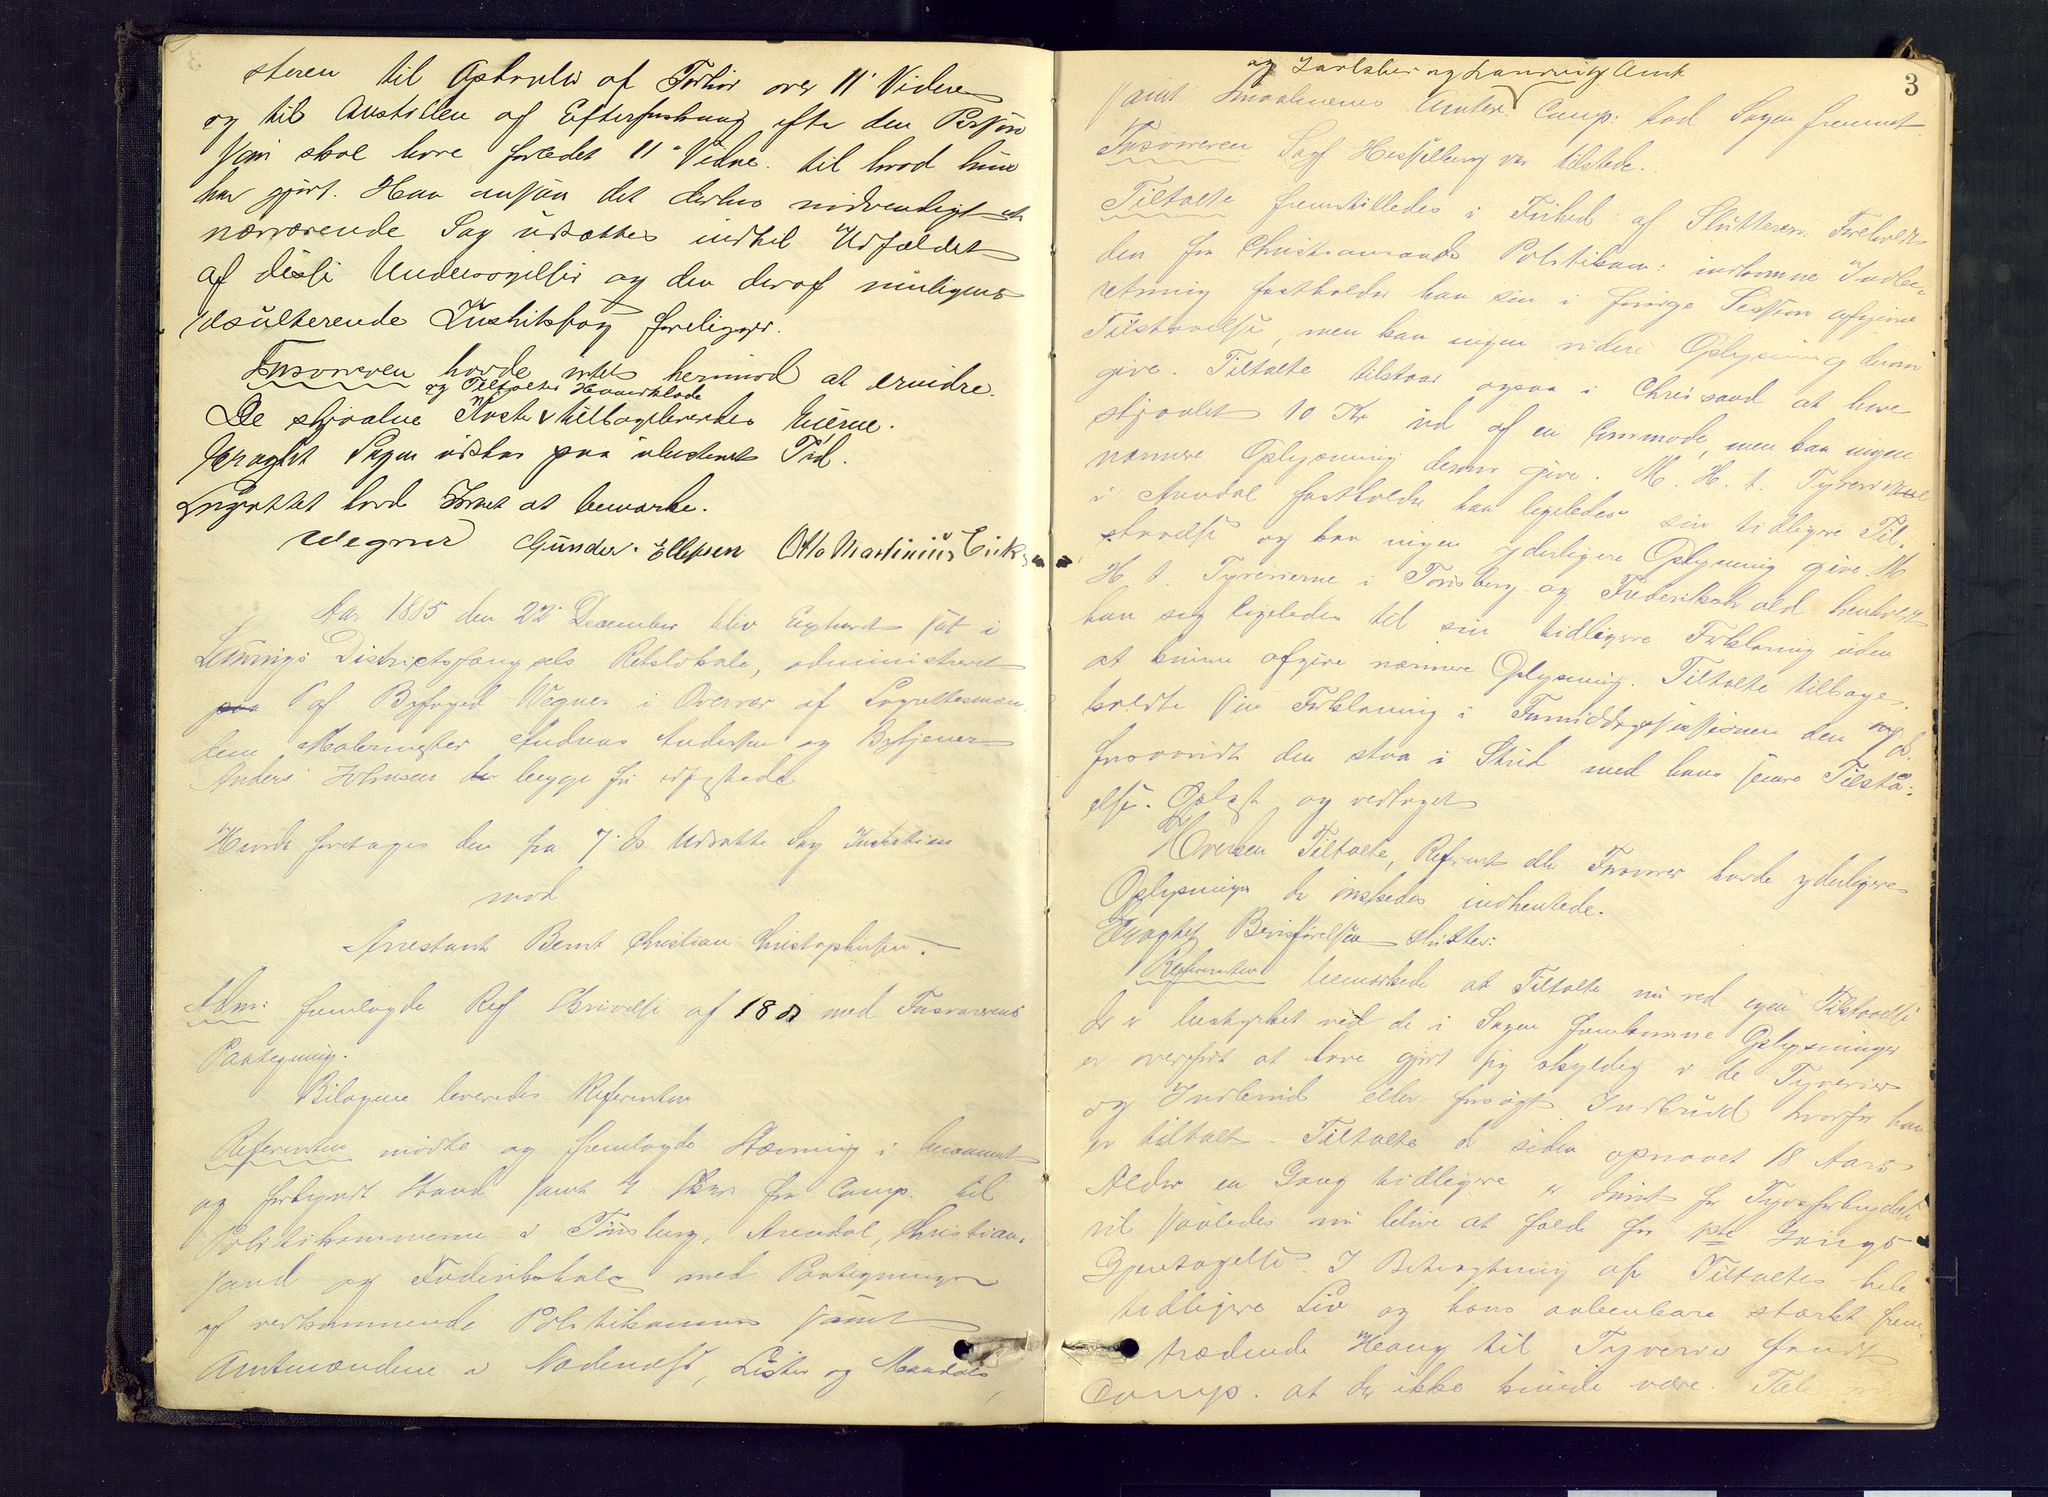 steren til Optagelse af Forhør over 11' Vidne
og til Anstillen af Efterforskning efter den Person
som skal have forledet 11' Vidne til hvad hun
har gjort. Han ansaa det derhos nødvendigt at
nærværende Sag udsættes indtil Udfaldet
af disse Undersøgelser og den deraf muligens
resulterende Justitssag foreligger.
Forsvareren havde intet herimod at erindre.
og Tiltaltes
De stjaalne Koster tilbageleveredes Eierne.
Eragtet Sagen udstaar paa ubestemt Tid.
Lagrettet havde Intet at bemærke.
Wegner Gunder Ellefsen Otto Martinius Erik
Aar 1885 den 22 December blev Extraret sat i
Districtsfængsels Retslokale, administreret
af Byfoged Wegner i Overvær af Lagrettesmæn
dene Malermester Andreas Andersen og
Anders Johnsen begge for
Hvorda foretoges den fra 7' ds Udsatte Sag Justitien
mod
Arrestant Bernt Christian Christophersen.
Adm: fremlagde Ref Skrivelse af 18 ds med Forsvarerens
Paategning.
Bilagene leveredes Referenten
Referenten mødte og fremlagde Stævning i
og forkyndt Stand samt 4 Skr. fra Camp. til
Politikamrene i Tønsberg, Arendal, Christian-
sand og Frederikshald med Paategninger
af vedkommende Politikammer samt
Amtmændene i Nedenæs, Lister og Mandals,
3
og Jarlsberg og Laurvigs Amt
samt Smaalenenes Amter. Camp: lod Sagen fremmet.
Forsvareren Sagf Hesselberg var tilstede.
Tiltalte fremstilledes i Frihed af Slutteren. Foreholdt
den fra Christianssands Politikam: indkomne Indbe-
retning fastholder han sin i forrige Session afgivne
Tilstaaelse, men kan ingen videre Oplysning derom
give. Tiltalte tilstaar ogsaa i Chrisand at have
stjaalet 10 Kr ud af en Commode, men kan ingen
nærmere Oplysning derom give. M. H. t. Tyverierne
i Arendal fastholder han ligeledes sin tidligere Til-
staaelse og kan ingen yderligere Oplysning give. M.
H. t. Tyverierne i Tønsberg og Frederikshald henholdt
han sig ligeledes til sin tidligere Forklaring uden
at kunne afgive nærmere Oplysning. Tiltalte tilbage-
kaldte sin Forklaring i Formiddagssessionen den
forsaavidt den staa i Strid med hans senere Tilstaa-
else. Oplæst og vedtaget
Hverken Tiltalte, Referent eller Forsvarer havde yderligere
Oplysninger de ønskedes indhentede.
Eragtet Bevisførelsen slutter:
Referenten bemærkede at Tiltalte nu ved egen Tilstaaelse
der er bestyrket ved de i Sagen fremkomne Oplysninger
er overført at have gjort sig skyldig i de Tyverier
og Indbrud eller forsøgt Indbrud hvorfor han
er tiltalt. Tiltalte der siden opnaaet 18 Aars
Alder en Gang tidligere er dømt for Tyvsforbrydelse
vil saaledes nu blive at fælde for Gangs
Gjentagelse. I Betragtning af Tiltaltes hele
tidligere Liv og hans aabenbare stærkt frem-
trædende Hang til Tyverier fandt
Camp. at der ikke kunde være Tale